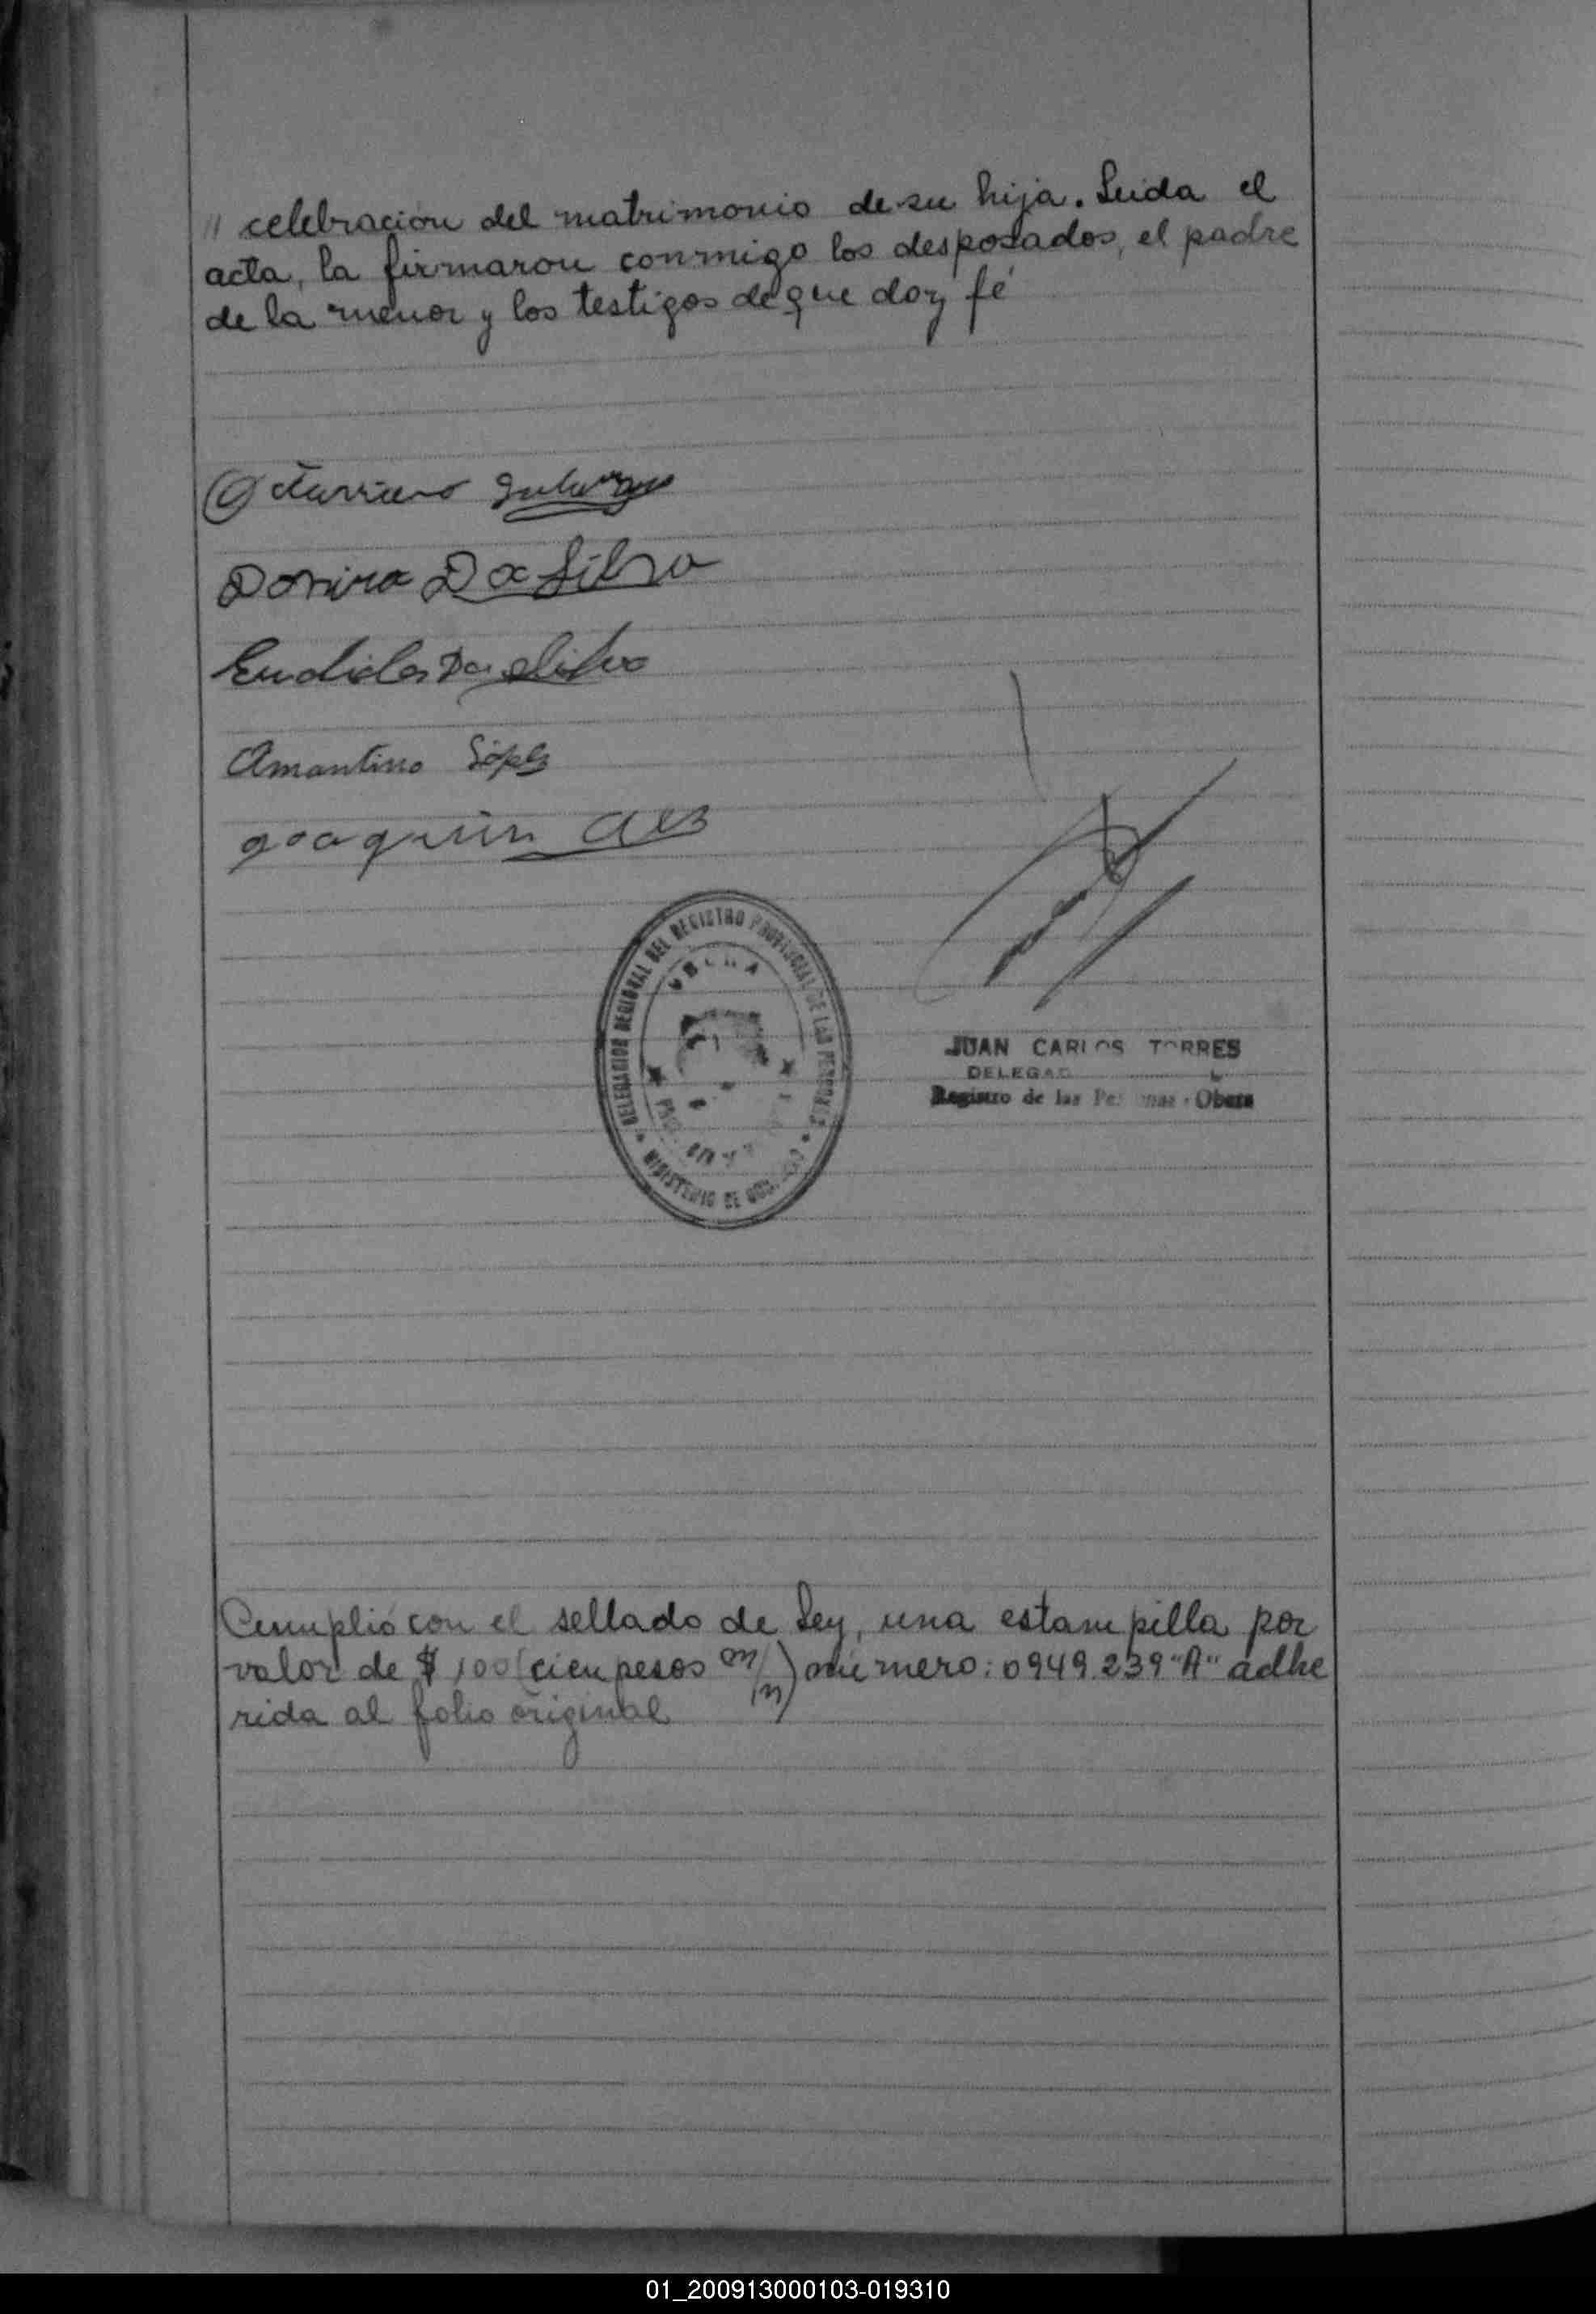 " celebración del matrimonio de su hija. Leida el
acta, la firmaron conmigo los desposados, el padre
de la menor y los testigos de que doy fé
Dorira Da Silva
Da Silva
Amantino López
Joaquin
DELEGACION REGIONAL DEL REGISTRO PROVINCIAL DE LAS PERSONAS
OBERA
MINISTERIO DE
JUAN CARLOS TORRES
Registro de las Obera
Cumplió con el sellado de Ley, una estampilla por
valor de $ 100 (cien pesos m/n) número: 0949.239 "A" adhe
rida al folio original
01_200913000103-019310